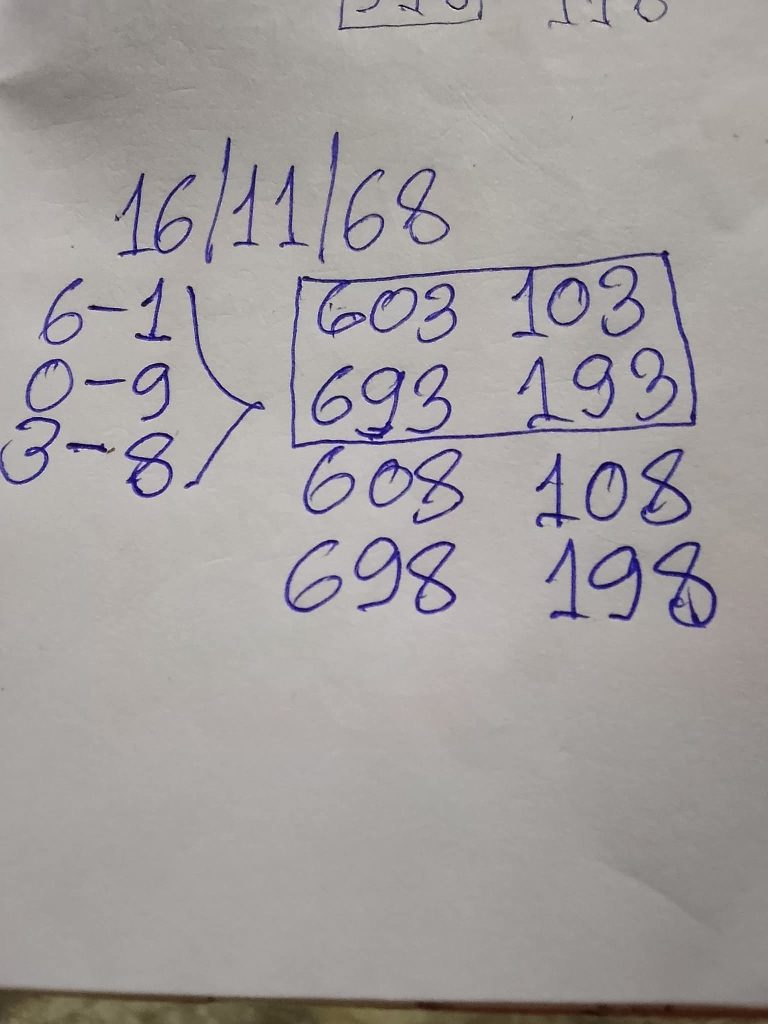 16/11/68
6-1
0-9
3-8
603 103
693 193
608 108
698 198